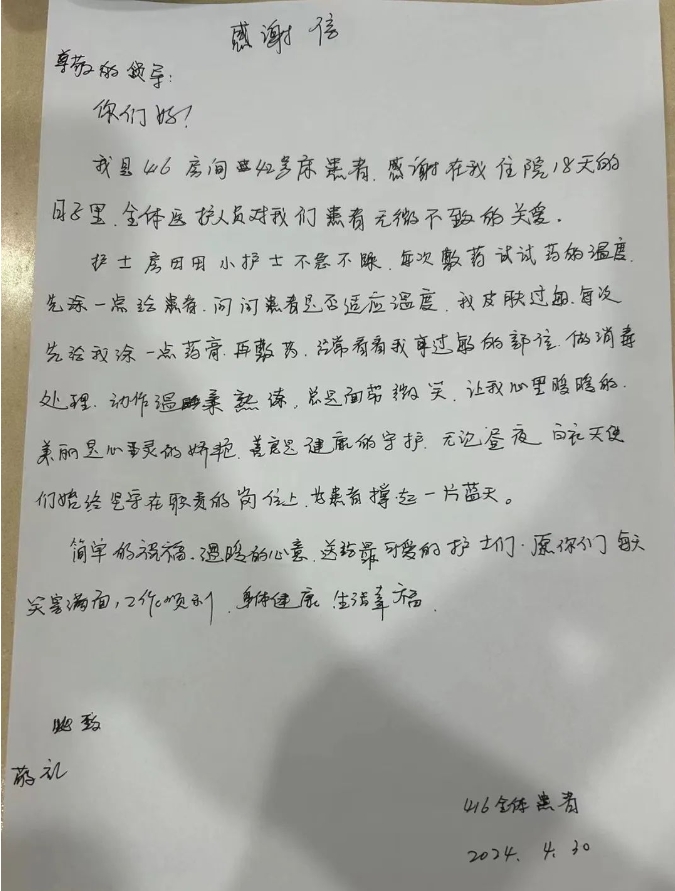 感谢信
尊敬的领导:
你们好!
我是416房间42号床患者,感谢在我住院18天的
日子里,全体医护人员对我们患者无微不致的关爱。
护士房田田小护士不急不躁,每次敷药试试药的温度,
先涂一点给患者,问问患者是否适应温度,我皮肤过敏,每次
先给我涂一点药膏,再敷药,经常看看我身过敏的部位,做消毒
处理,动作温柔熟练,总是面带微笑,让我心里暖暖的,
美丽是心灵的娇艳,善良是健康的守护,无论昼夜 白衣天使
们始终坚守在职责的岗位上,为患者撑起一片蓝天。
简单的祝福、温暖的心意,送给最可爱的护士们,愿你们每天
笑容满面,工作顺利,身体健康 生活幸福,
此致
敬礼
416全体患者
2024.4.30